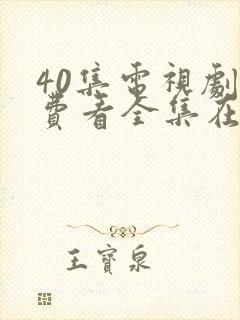 40集電視劇
費看全集在
王寶泉